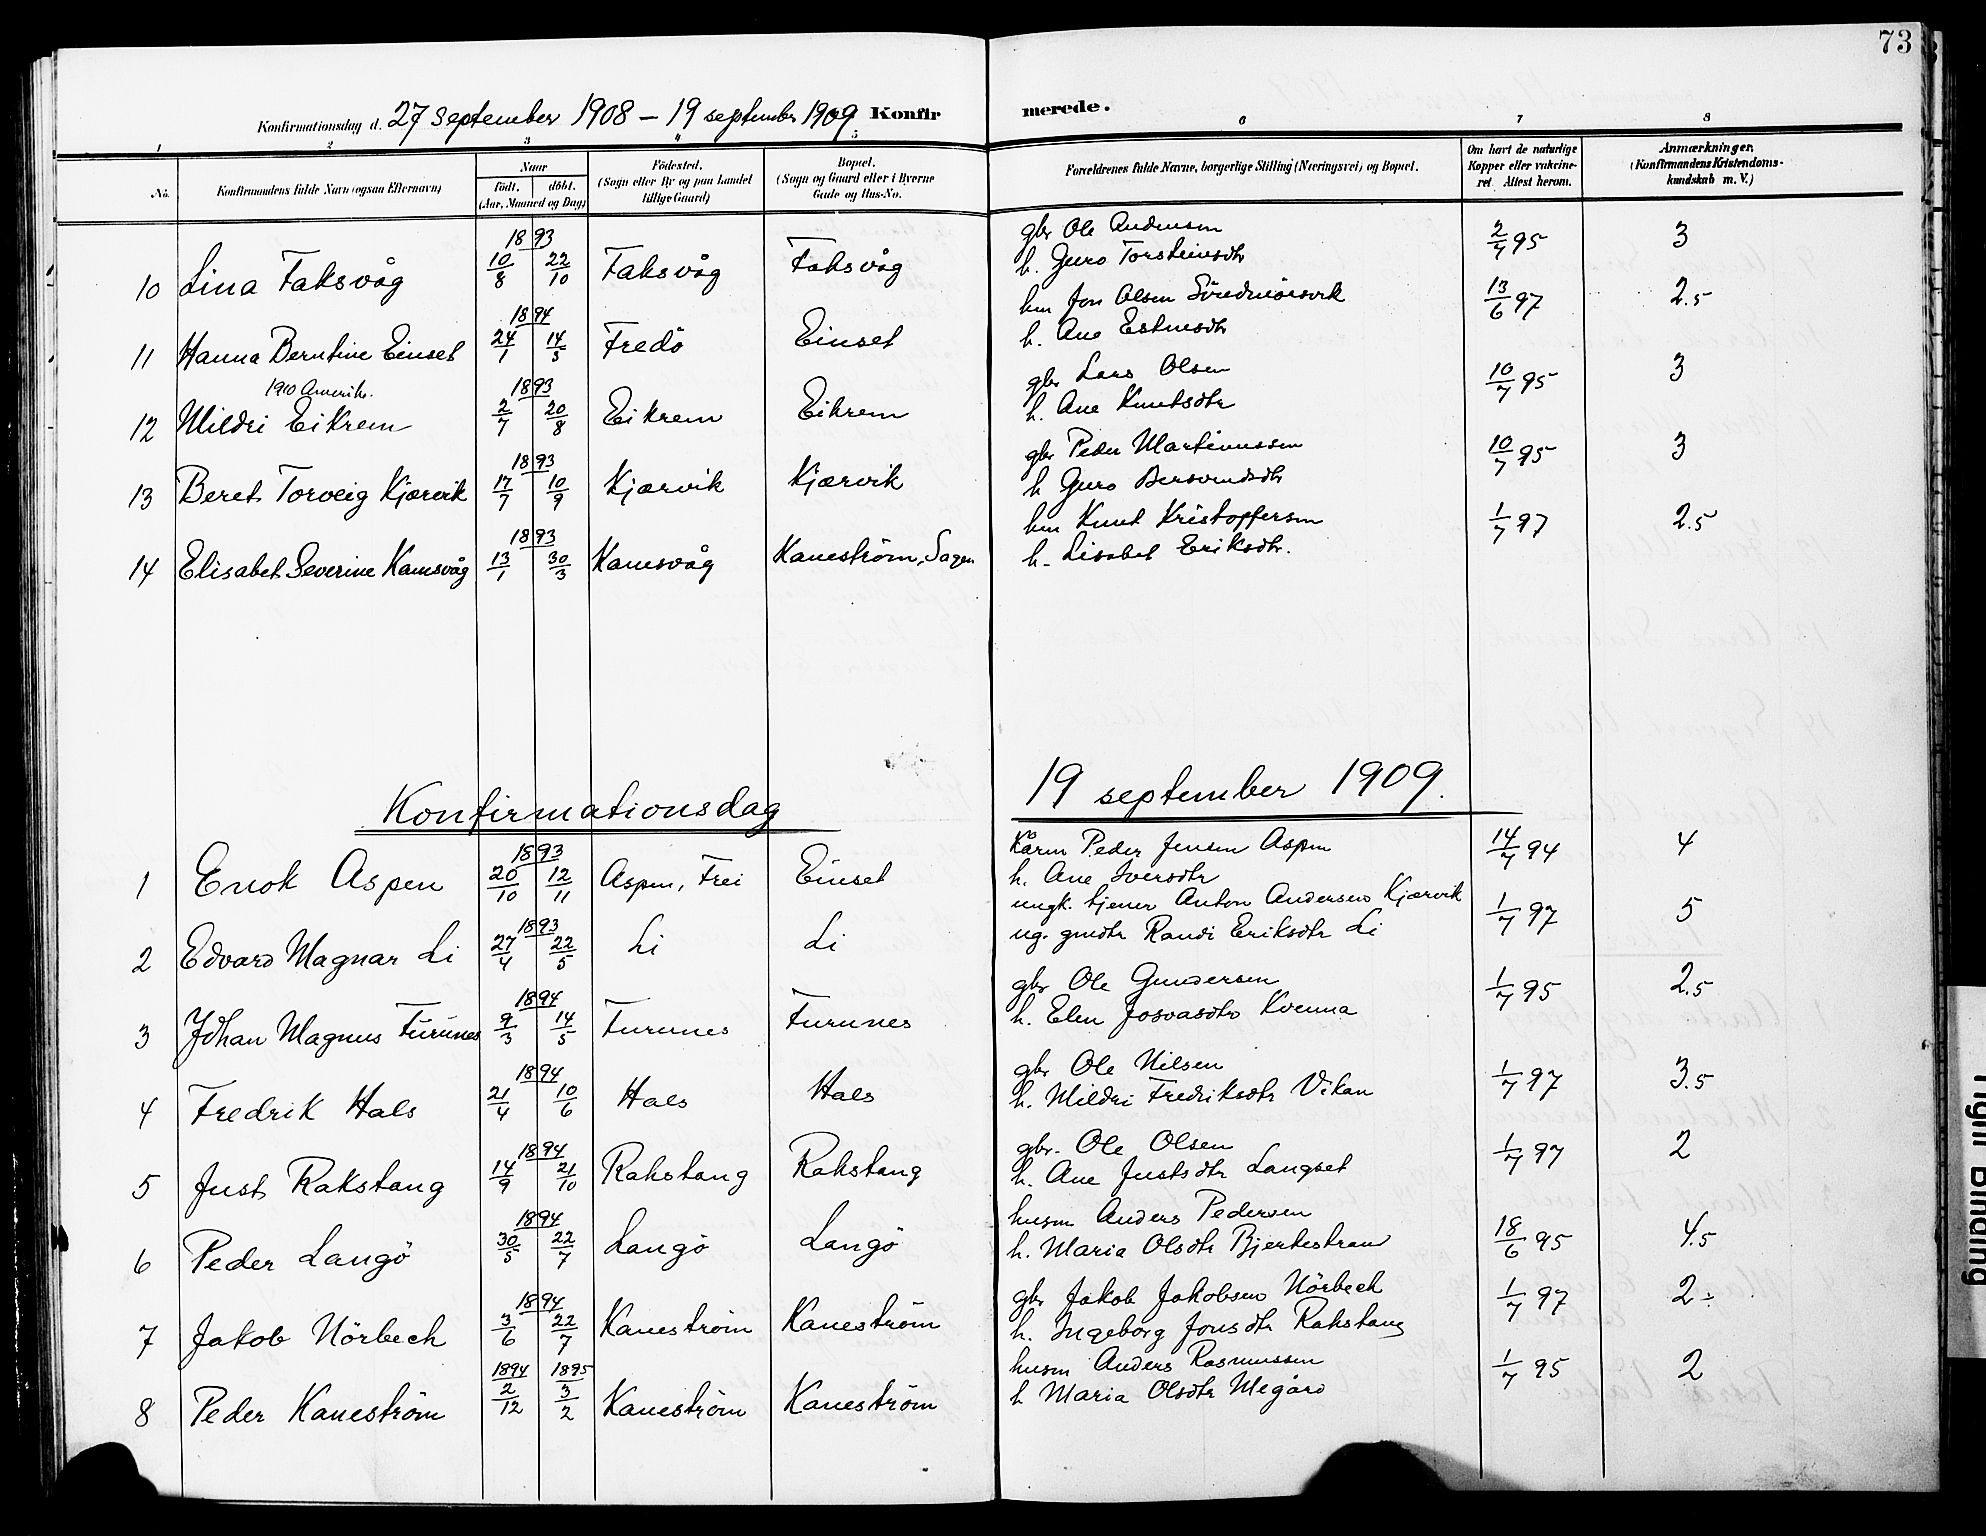 73
Konfirmationsdag d. 27 september 1908 – 19 september 1909 Konfirmerede.
1 2 3 4 5 6 7 8
No. Konfirmandens fulde Navn (ogsaa Efternavn) Naar født. døbt. (Aar, Maaned og Dag) Fødested. (Sogn eller By og paa Landet tillige Gaard) Bopæl. (Sogn og Gaard eller i Byerne Gade og Hus-No. Forældrenes fulde Navne, borgerlige Stilling (Næringsvei) og Bopæl. Om havt de naturlige Kopper eller vakcineret. Attest herom. Anmærkninger. (Konfirmandens Kristendomskundskab m. V.)
10 Lina Taksvåg 1893 10/8 22/10 Taksvåg Taksvåg gbr Ole Andersen 2/7 95 3
h. Guro Torsteinsdtr
11 Hanna Berntine Einset 1894 24/1 14/3 Fredö Einset hm Jon Olsen 13/6 97 2.5
h. Ane Estensdtr
1910 Amerik.
12 Mildri Eikrem 1893 2/7 20/8 Eikrem Eikrem gbr Lars Olsen 10/7 95 3
h. Ane Knutsdtr
13 Beret Torveig Kjærvik 1893 17/7 10/9 Kjærvik Kjærvik gbr Peder Martinussen 10/7 95 3
h Guro Bersvendsdtr
14 Elisabet Severine Kamsvåg 1893 13/1 30/3 Kamsvåg Kaneström, Sagen hm Knut Kristoffersen 1/7 97 2.5
h. Lisabet Eriksdtr.
Konfirmationsdag 19 september 1909.
1 Enok Aspen 1893 20/10 12/11 Aspen, Frei Einset Kårm Peder Jensen Aspen 14/7 94 4
h. Ane Iversdtr
2 Edvard Magnar Li 1893 27/4 22/5 Li Li ungk. tjener Anton Andersen Kjærvik 1/7 97 5
ug. gmdtr Randi Eriksdtr Li
3 Johan Magnus Furunes 1894 9/3 14/5 Furunes Furunes gbr Ole Gundersen 1/7 95 2.5
h. Elen Josvasdtr Kvenna
4 Fredrik Hals 1894 21/4 10/6 Hals Hals gbr Ole Nilsen 1/7 97 3.5
h. Mildri Fredriksdtr Vikan
5 Just Rakstang 1894 14/9 21/10 Rakstang Rakstang gbr. Ole Olsen 1/7 97 2
h. Ane Justsdtr Langset
6 Peder Langö 1894 30/5 22/7 Langö Langö husm Anders Pedersen 18/6 95 4.5
h. Maria Olsdtr Bjerkestran
7 Jakob Nörbech 1894 3/6 22/7 Kaneström Kaneström gbr Jakob Jakobsen Nörbech 1/7 97 2÷
h. Ingeborg Jonsdtr Rakstang
8 Peder Kaneström 1894 2/12 1895 3/2 Kaneström Kaneström husm Anders Rasmussen 1/7 95 2
h Maria Olsdtr Megård
Tight Binding